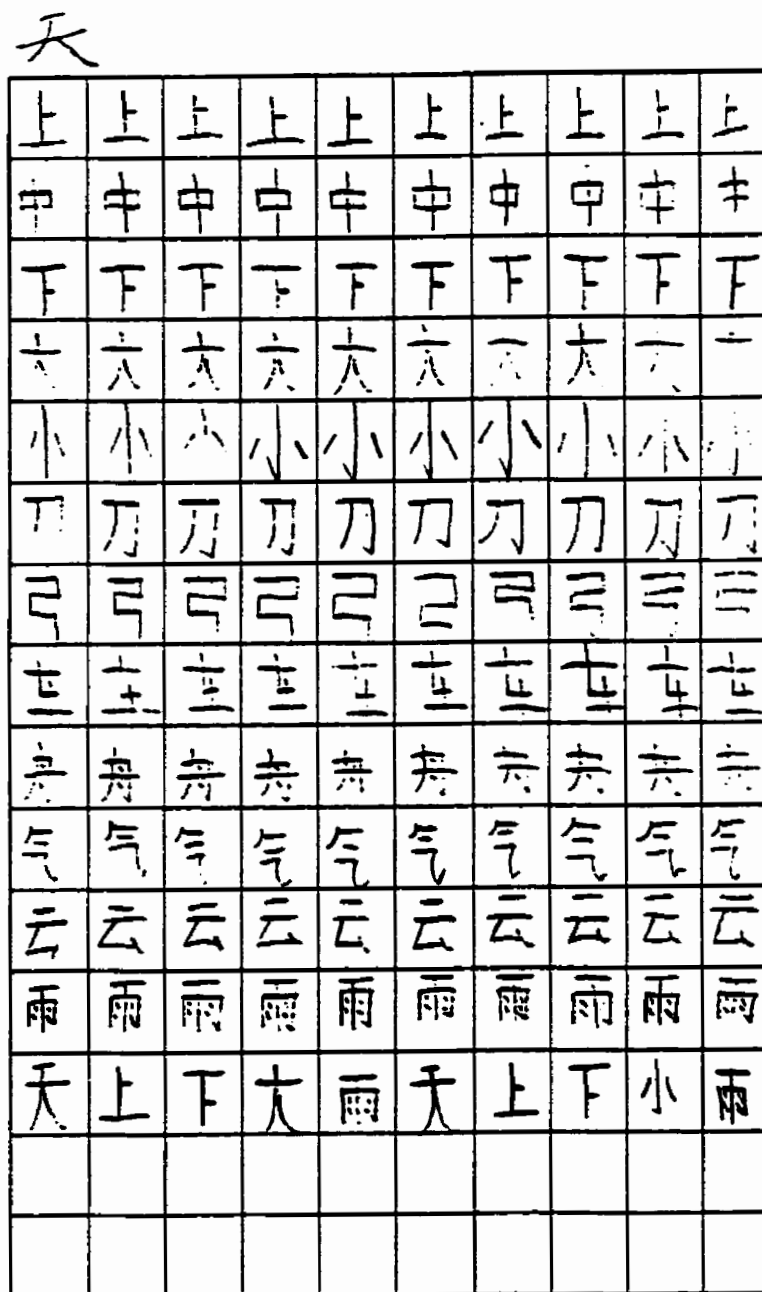 天
上上上上上上上上上上
中中中中中中中中中中
下下下下下下下下下下
大大大大大大大大大
小小小小小小小小小小
刀刀刀刀刀刀刀刀刀刀
弓弓弓弓弓弓弓弓弓弓
气气气气气气气气气气
云云云云云云云云云云
雨雨雨雨雨雨雨雨雨雨
天上下大雨天上下小雨